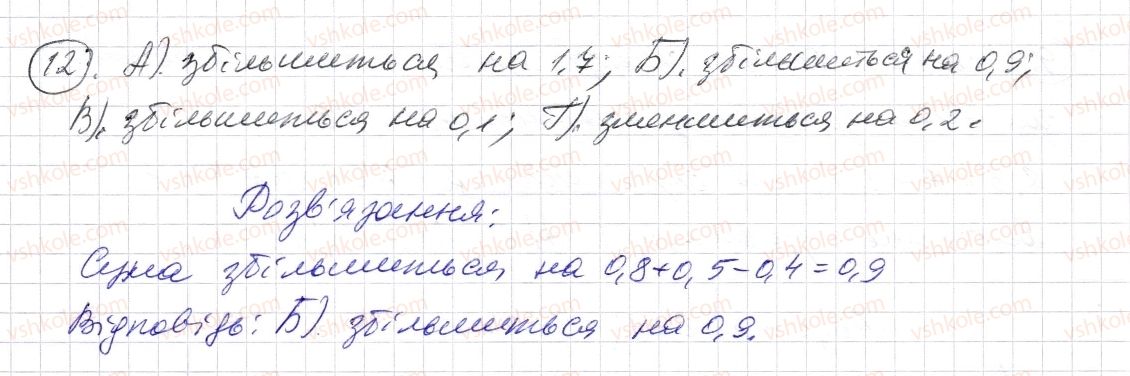 12). А). збільшиться на 1,7; Б). збільшиться на 0,9;
В). збільшиться на 0,1; Г). зменшиться на 0,2.
Розв'язання:
Сума збільшиться на 0,8+0,5-0,4=0,9
Відповідь: Б). збільшиться на 0,9.